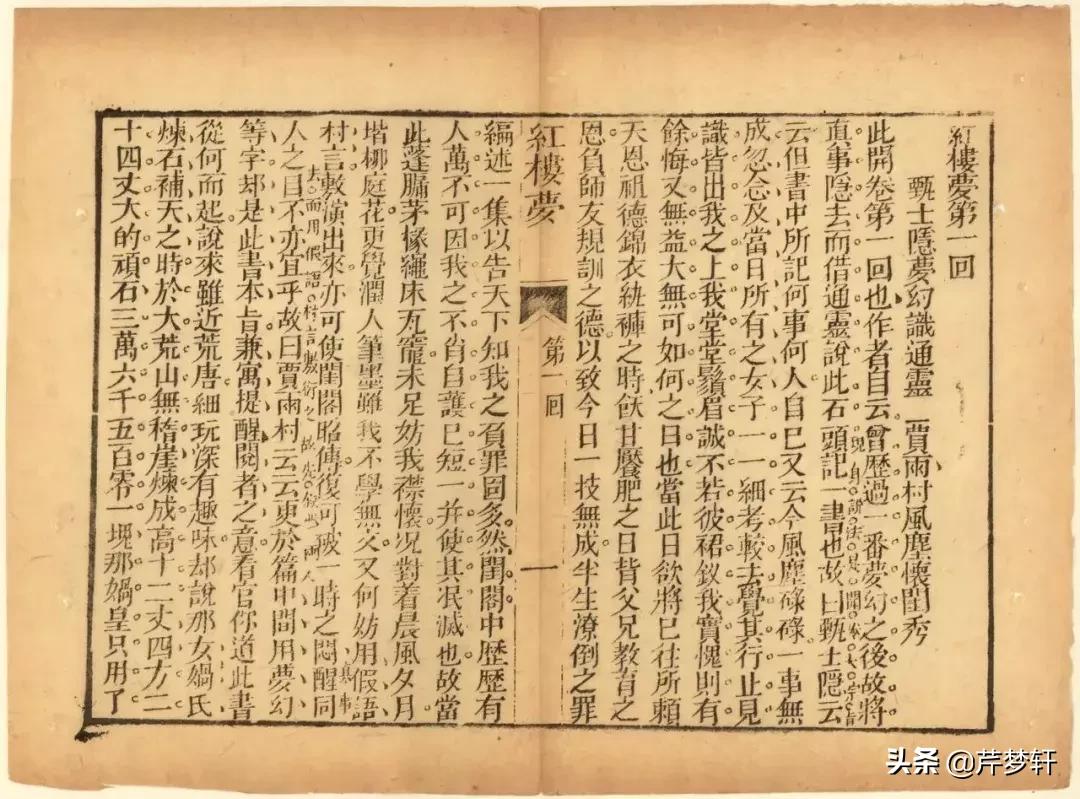 紅樓夢第一回
甄士隱夢幻識通靈　賈雨村風塵懷閨秀
此開卷第一回也作者自云曾歷過一番夢幻之後故將
現身說法是開
真事隱去而借通靈說此石頭記一書也故曰甄士隱云
云但書中所記何事何人自己又云今風塵碌碌一事無
成忽念及當日所有之女子一一細考較去覺其行止見
識皆出我之上我堂堂鬚眉誠不若彼裙釵我實愧則有
餘悔又無益大無可如何之日也當此日欲將已往所賴
天恩祖德錦衣紈褲之時飫甘饜肥之日背父兄教育之
恩負師友規訓之德以致今日一技無成半生潦倒之罪
紅樓夢　第一回　一
編述一集以告天下知我之負罪固多然閨閣中歷歷有
人萬不可因我之不肖自護己短一并使其泯滅也故當
此蓬牖茅椽繩床瓦竈未足妨我襟懷况對着晨風夕月
堦柳庭花更覺潤人筆墨雖我不學無文又何妨用假語
村言敷演出來亦可使閨閣昭傳復可破一時之悶醒同
真事
去而用假語村言敷衍之故先叙兩人
人之目不亦宜乎故曰賈雨村云云更於篇中間用夢幻
等字却是此書本旨兼寓提醒閱者之意看官你道此書
從何而起說來雖近荒唐細玩深有趣味却說那女媧氏
煉石補天之時於大荒山無稽崖煉成高十二丈四方二
十四丈大的頑石三萬六千五百零一塊那媧皇只用了
头条 @芹梦轩